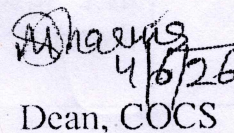 4/6/26
Dean, COCS